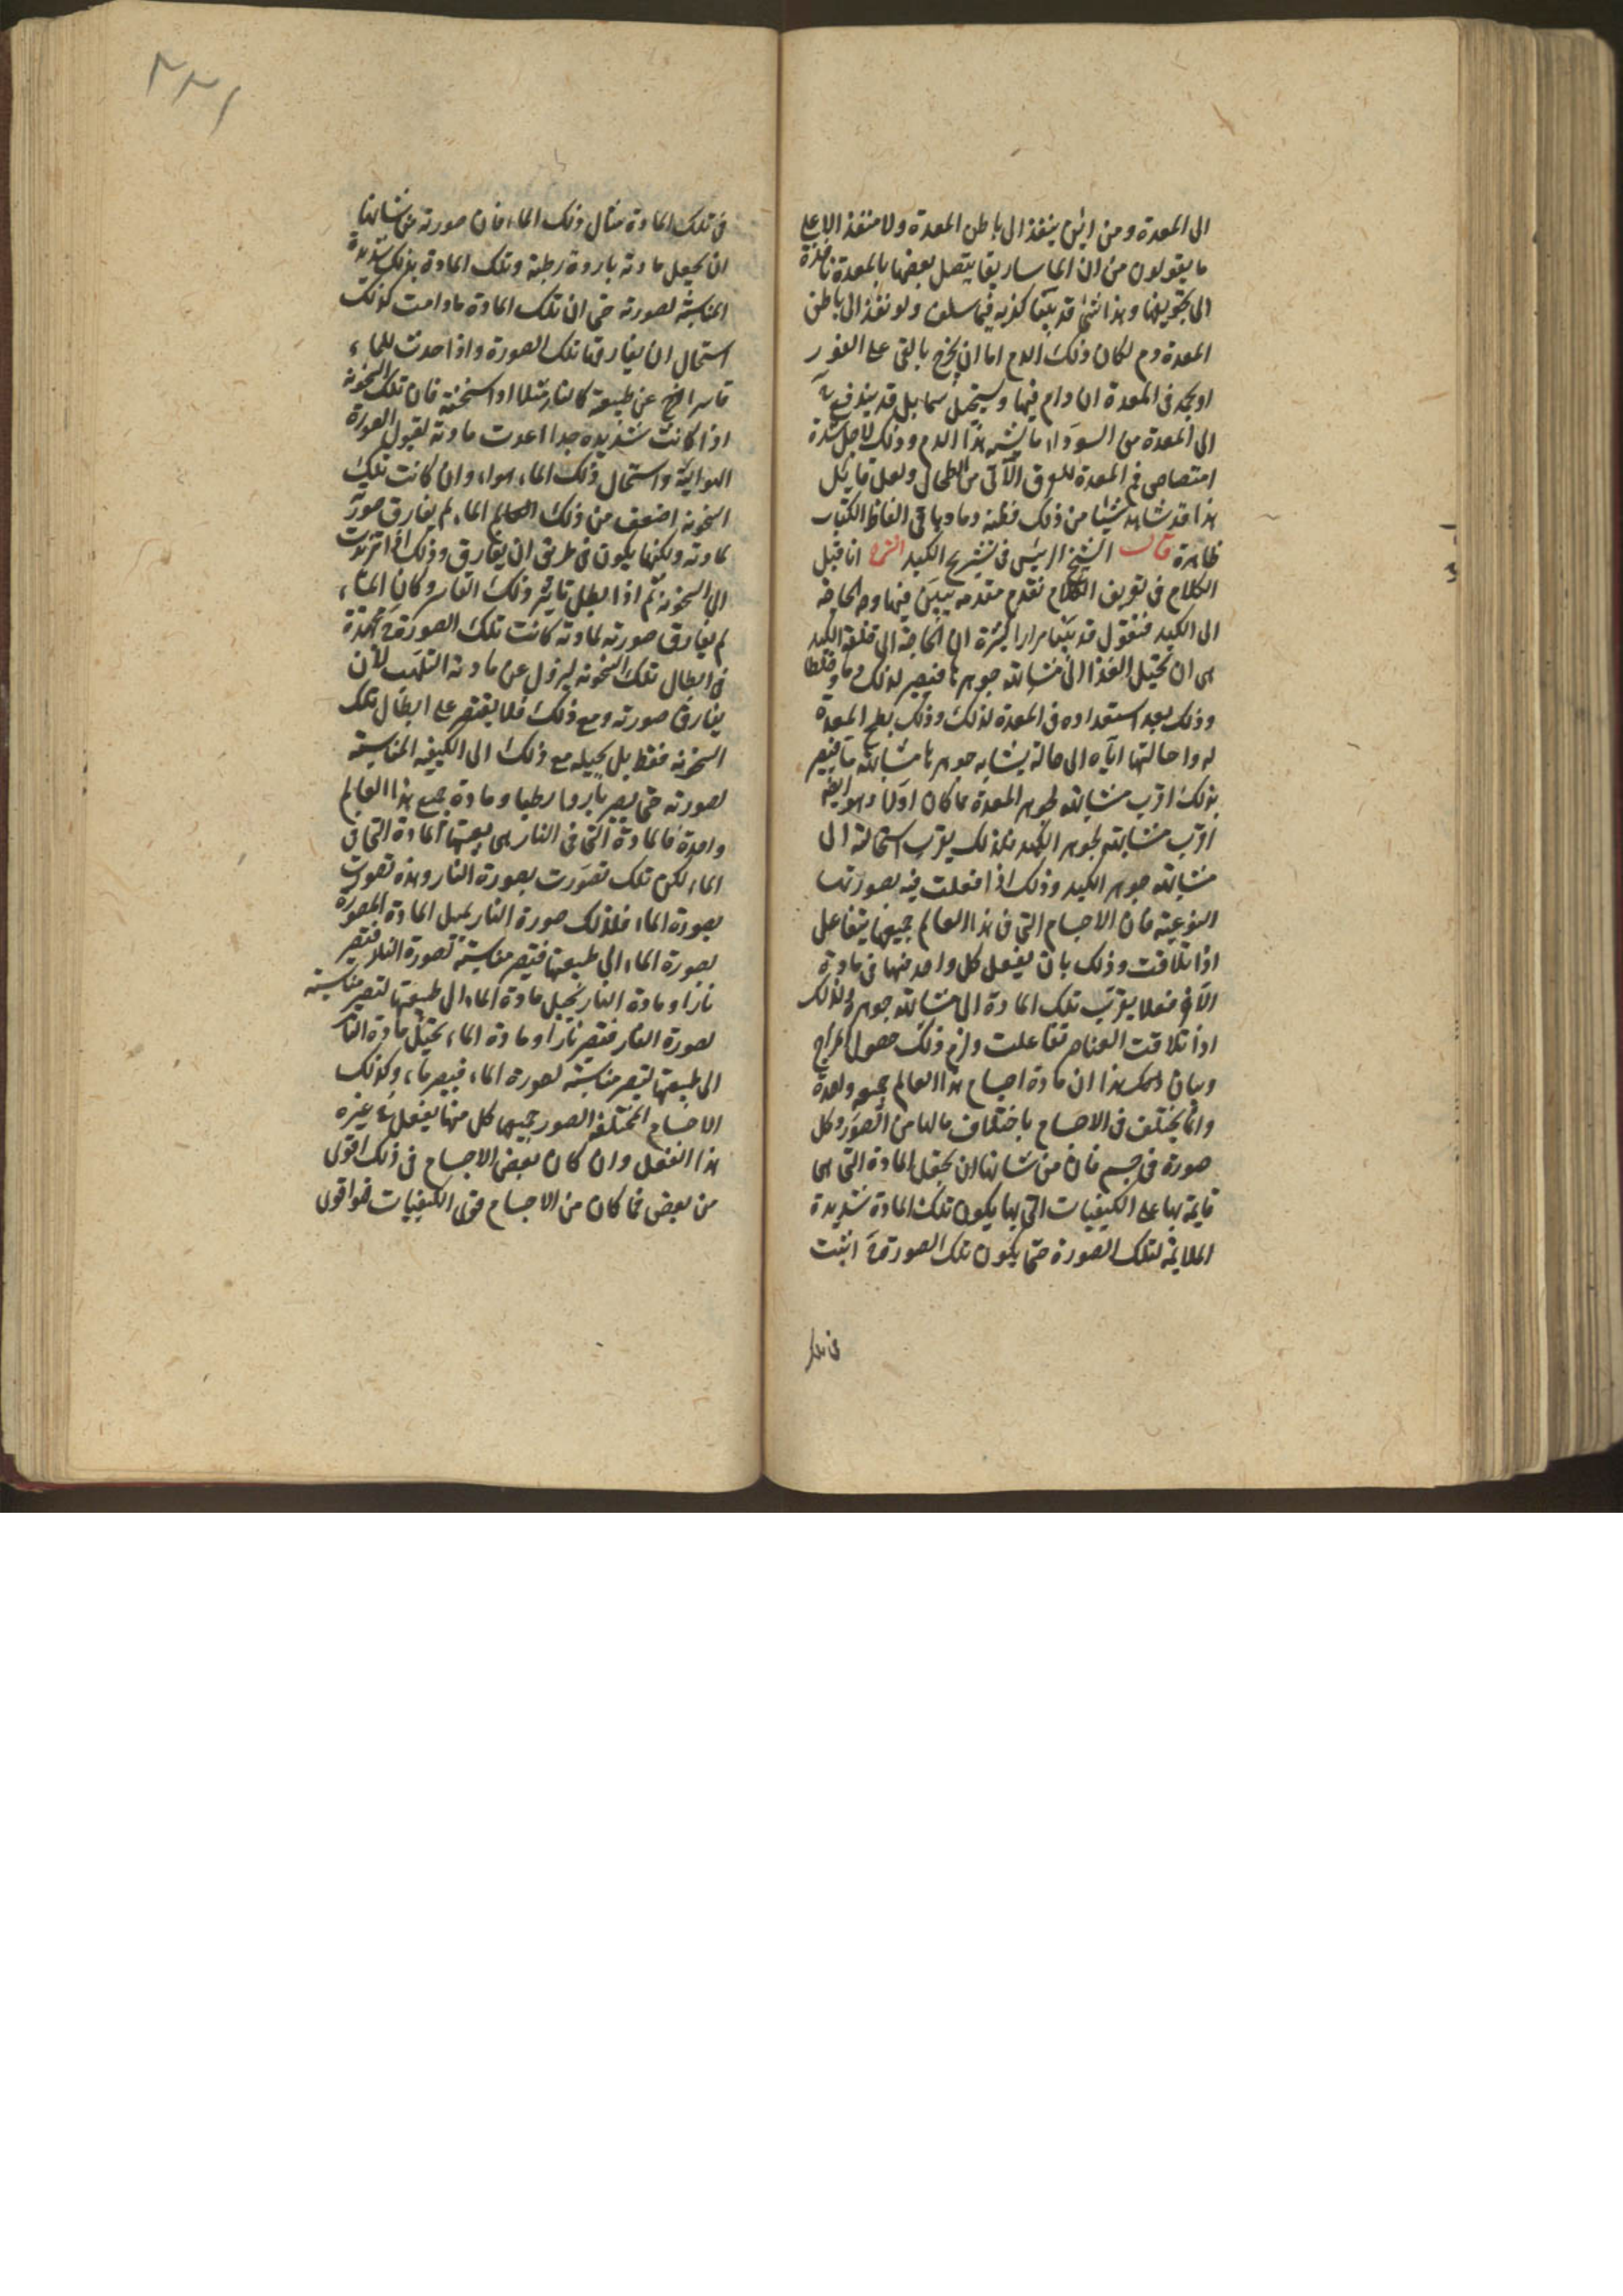 الى المعدة ومن اين ينفذ الى باطن المعدة ولا منفذ الا على
ما يقولون من ان الماساريقا يتصل بعضها بالمعدة نافذة
الى تجويفها وهذا شئ قد بينا كذبه فيما سلف ولو نفذ الى باطن
المعدة دم لكان ذلك الدم اما ان يخرج بالقئ على الفور
او يجمد فى المعدة ان دام فيها ويستحيل سما بل قد يندفع
الى المعدة من السوداء ما يشبه هذا الدم وذلك لاجل شدة
امتصاص فم المعدة للعرق الآتى من الطحال ولعل قائل
هذا قد شاهد شيئا من ذلك فظنه دما وباقى الفاظ الكتاب
ظاهرة قال الشيخ الرئيس فى تشريح الكبد الشرح انا قبل
الكلام فى تعريف الكلام نقدم مقدمه نبين فيها وجه الحاجة
الى الكبد فنقول قد بينا مرارا كثيرة ان الحاجة الى خلقة الكبد
هى ان تحيل الغذا الى مشابهة جوهرها فتصير لذلك دما وخلطا
وذلك بعد استعداده فى المعدة لذلك وذلك بطبخ المعدة
له واحالتها اياه الى حالة يشابه جوهرها مشابهة ما فيصير
بذلك اقرب مشابهة لجوهر المعدة مما كان اولا وهو ايضا
اقرب مشابهة لجوهر الكبد فلذلك يقرب استحالته الى
مشابهة جوهر الكبد وذلك اذا فعلت فيه بصورتها
النوعية فان الاجسام التى فى هذا العالم جميعها يتفاعل
اذا تلاقت وذلك بان يفعل كل واحد منها فى مادة
الآخر فعلا يقرب تلك المادة الى مشابهة جوهره ولذلك
اذا تلاقت العناصر تفاعلت ولزم ذلك حصول المزاج
وبيان ذلك هذا ان مادة اجسام هذا العالم جميعه واحدة
وانما يختلف فى الاجسام باختلاف مالها من الصور وكل
صورة فى جسم فان من شانها ان تجعل المادة التى هى
قايمة بها على الكيفيات التى بها يكون تلك المادة شديدة
الملايمة لتلك الصورة حتى يكون تلك الصورة اثبت
فى تلك
٢٢١
فى تلك المادة مثال ذلك الماء فان صورته من شانها
ان يجعل مادته باردة رطبة وتلك المادة بذلك شديدة
المناسبة لصورته حتى ان تلك المادة ما دامت كذلك
استحال ان يفارقها تلك الصورة واذا حدث للماء
قاسر اخرج عن طبيعته كالنار مثلا اذا سخنته فان تلك السخونة
اذا كانت شديدة جدا اعدت مادته لقبول الصورة
الهوائية واستحال ذلك الماء هواء وان كانت تلك
السخونة اضعف من ذلك الماء لم يفارق صورته
لمادته ولكنها يكون فى طريق ان يفارق وذلك اذا تزيدت
الى السخونة ثم اذا بطل تاثير ذلك القاسر وكان الماء
لم يفارق صورته لمادته كانت تلك الصورة مجتهدة
فى ابطال تلك السخونة ليزول عن مادته التهيئ لان
يفارق صورته ومع ذلك فلا يقتصر على ابطال تلك
السخونة فقط بل يحيله مع ذلك الى الكيفية المناسبة
لصورته حتى يصير باردا رطبا ومادة جميع هذا العالم
واحدة فالمادة التى فى النار هى بعينها المادة التى فى
الماء لكن تلك تصورت بصورة النار وهذه تصورت
بصورة الماء فلذلك صورة النار تحيل المادة المصورة
بصورة الماء الى طبيعتها فتصير مناسبة لصورة النار فتصير
نارا ومادة النار تحيل مادة الماء الى طبيعتها لتصير مناسبة
لصورة النار فتصير نارا ومادة الماء تحيل مادة النار
الى طبيعتها لتصير مناسبة لصورة الماء فيصير ماء وكذلك
الاجسام المختلفة الصور جميعها كل منها يفعل فى غيره
هذا الفعل وان كان بعض الاجسام فى ذلك اقوى
من بعض فما كان من الاجسام قوى الكيفيات فهو اقوى